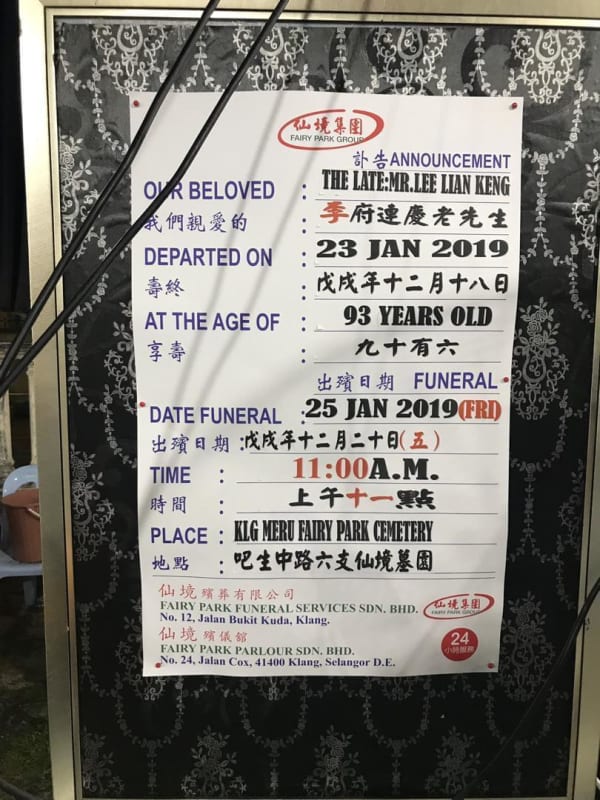 仙境集團
FAIRY PARK GROUP
訃告ANNOUNCEMENT
OUR BELOVED : THE LATE:MR.LEE LIAN KENG
我們親愛的 : 李府連慶老先生
DEPARTED ON : 23 JAN 2019
壽終 : 戊戌年十二月十八日
AT THE AGE OF : 93 YEARS OLD
享壽 : 九十有六
出殯日期 FUNERAL
DATE FUNERAL : 25 JAN 2019(FRI)
出殯日期 :戊戌年十二月二十日(五)
TIME : 11:00A.M.
時間 : 上午十一點
PLACE : KLG MERU FAIRY PARK CEMETERY
地點 : 吧生中路六支仙境墓園
仙境殯葬有限公司
FAIRY PARK FUNERAL SERVICES SDN. BHD.
No. 12, Jalan Bukit Kuda, Klang.
仙境集團
FAIRY PARK GROUP
仙境殯儀館
FAIRY PARK PARLOUR SDN. BHD.
No. 24, Jalan Cox, 41400 Klang, Selangor D.E.
24
小時服務